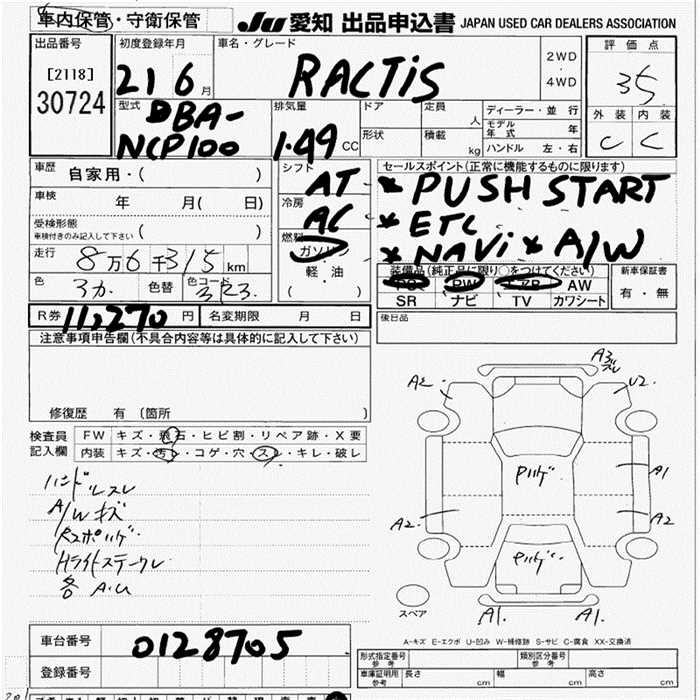 車内保管・守衛保管 JU 愛知 出品申込書 JAPAN USED CAR DEALERS ASSOCIATION
出品番号
[2118]
30724
初度登録年月
21 6 月
車名・グレード
RACTIS
2WD
4WD
評価点
3.5
外装 内装
C C
型式
DBA-
NCP100
排気量
1.49 CC
ドア
形状
定員 人
積載 kg
ディーラー・並行
モデル年式 年
ハンドル 左・右
車歴
自家用・( )
車検 年 月( 日)
受検形態
車検付きのみ記入して下さい ( )
走行 8万6千315km
色 色替 色コード
シフト AT
冷房 AC
燃料
ガソリン
軽・油
( )
セールスポイント(正常に機能するものに限ります)
* PUSH START
* ETC
* NAVi * A/W
装備品(純正品に限り○をつけてください)
PS PW AW
SR ナビ TV カワシート
新車保証書
有・無
後日品
R券 11,270 円 名変期限 月 日
注意事項申告欄(不具合内容等は具体的に記入して下さい)
修復歴 有 (箇所 )
検査員記入欄
FW キズ・飛石・ヒビ割・リペア跡・X要
内装 キズ・汚レ・コゲ・穴・スレ・キレ・破レ
ハンドルスレ
A/Wキズ
各 A.U
A3
スレ
A2
U2
Pハゲ
A1
A2
A2
Pハゲ
A1.
A1.
スペア
A-キズ E-エクボ U-凹み W-補修跡 S-サビ C-腐食 XX-交換済
車台番号 0128705
登録番号
形式指定番号 参考
類別区分番号 参考
車庫証明用 参考 長さ cm 幅 cm 高さ cm